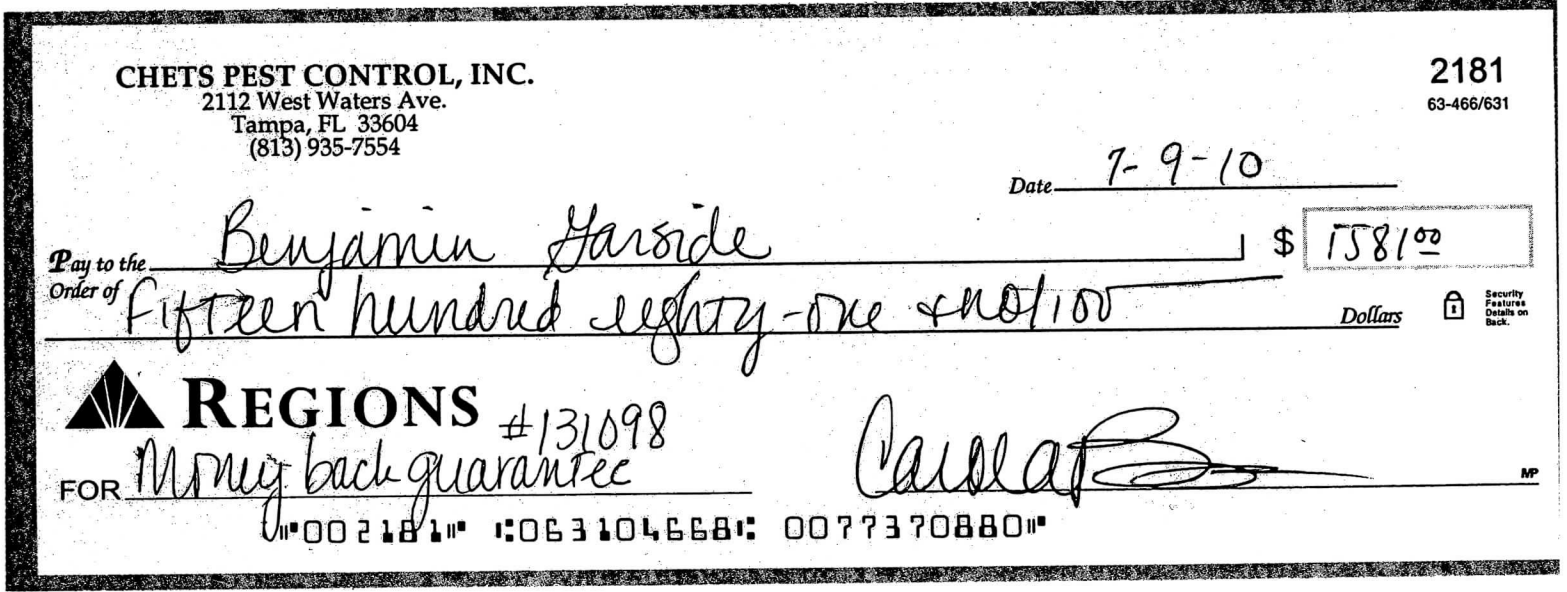 CHETS PEST CONTROL, INC.
2112 West Waters Ave.
Tampa, FL 33604
(813) 935-7554
2181
63-466/631
Date 7-9-10
Pay to the Order of Benjamin Garside $ 1581 00
Fifteen hundred eighty-one & no/100 Dollars
Security Features Details on Back.
REGIONS #131098
FOR Money back guarantee
Carola
MP
⑈002181⑈ ⑆063104668⑆ 0077370880⑈